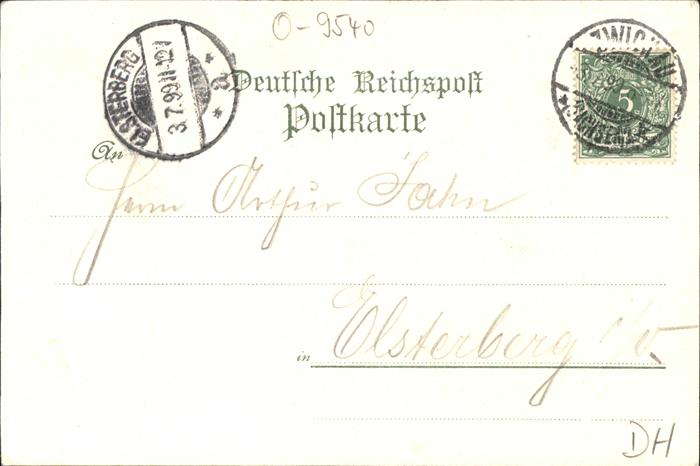 O-9540
ELSTERBERG
3.7.99.11-12V
* a. *
ZWICKAU
5
Deutsche Reichspost
Postkarte
An
Herrn Arthur Jahn
in Elsterberg i/V.
DH